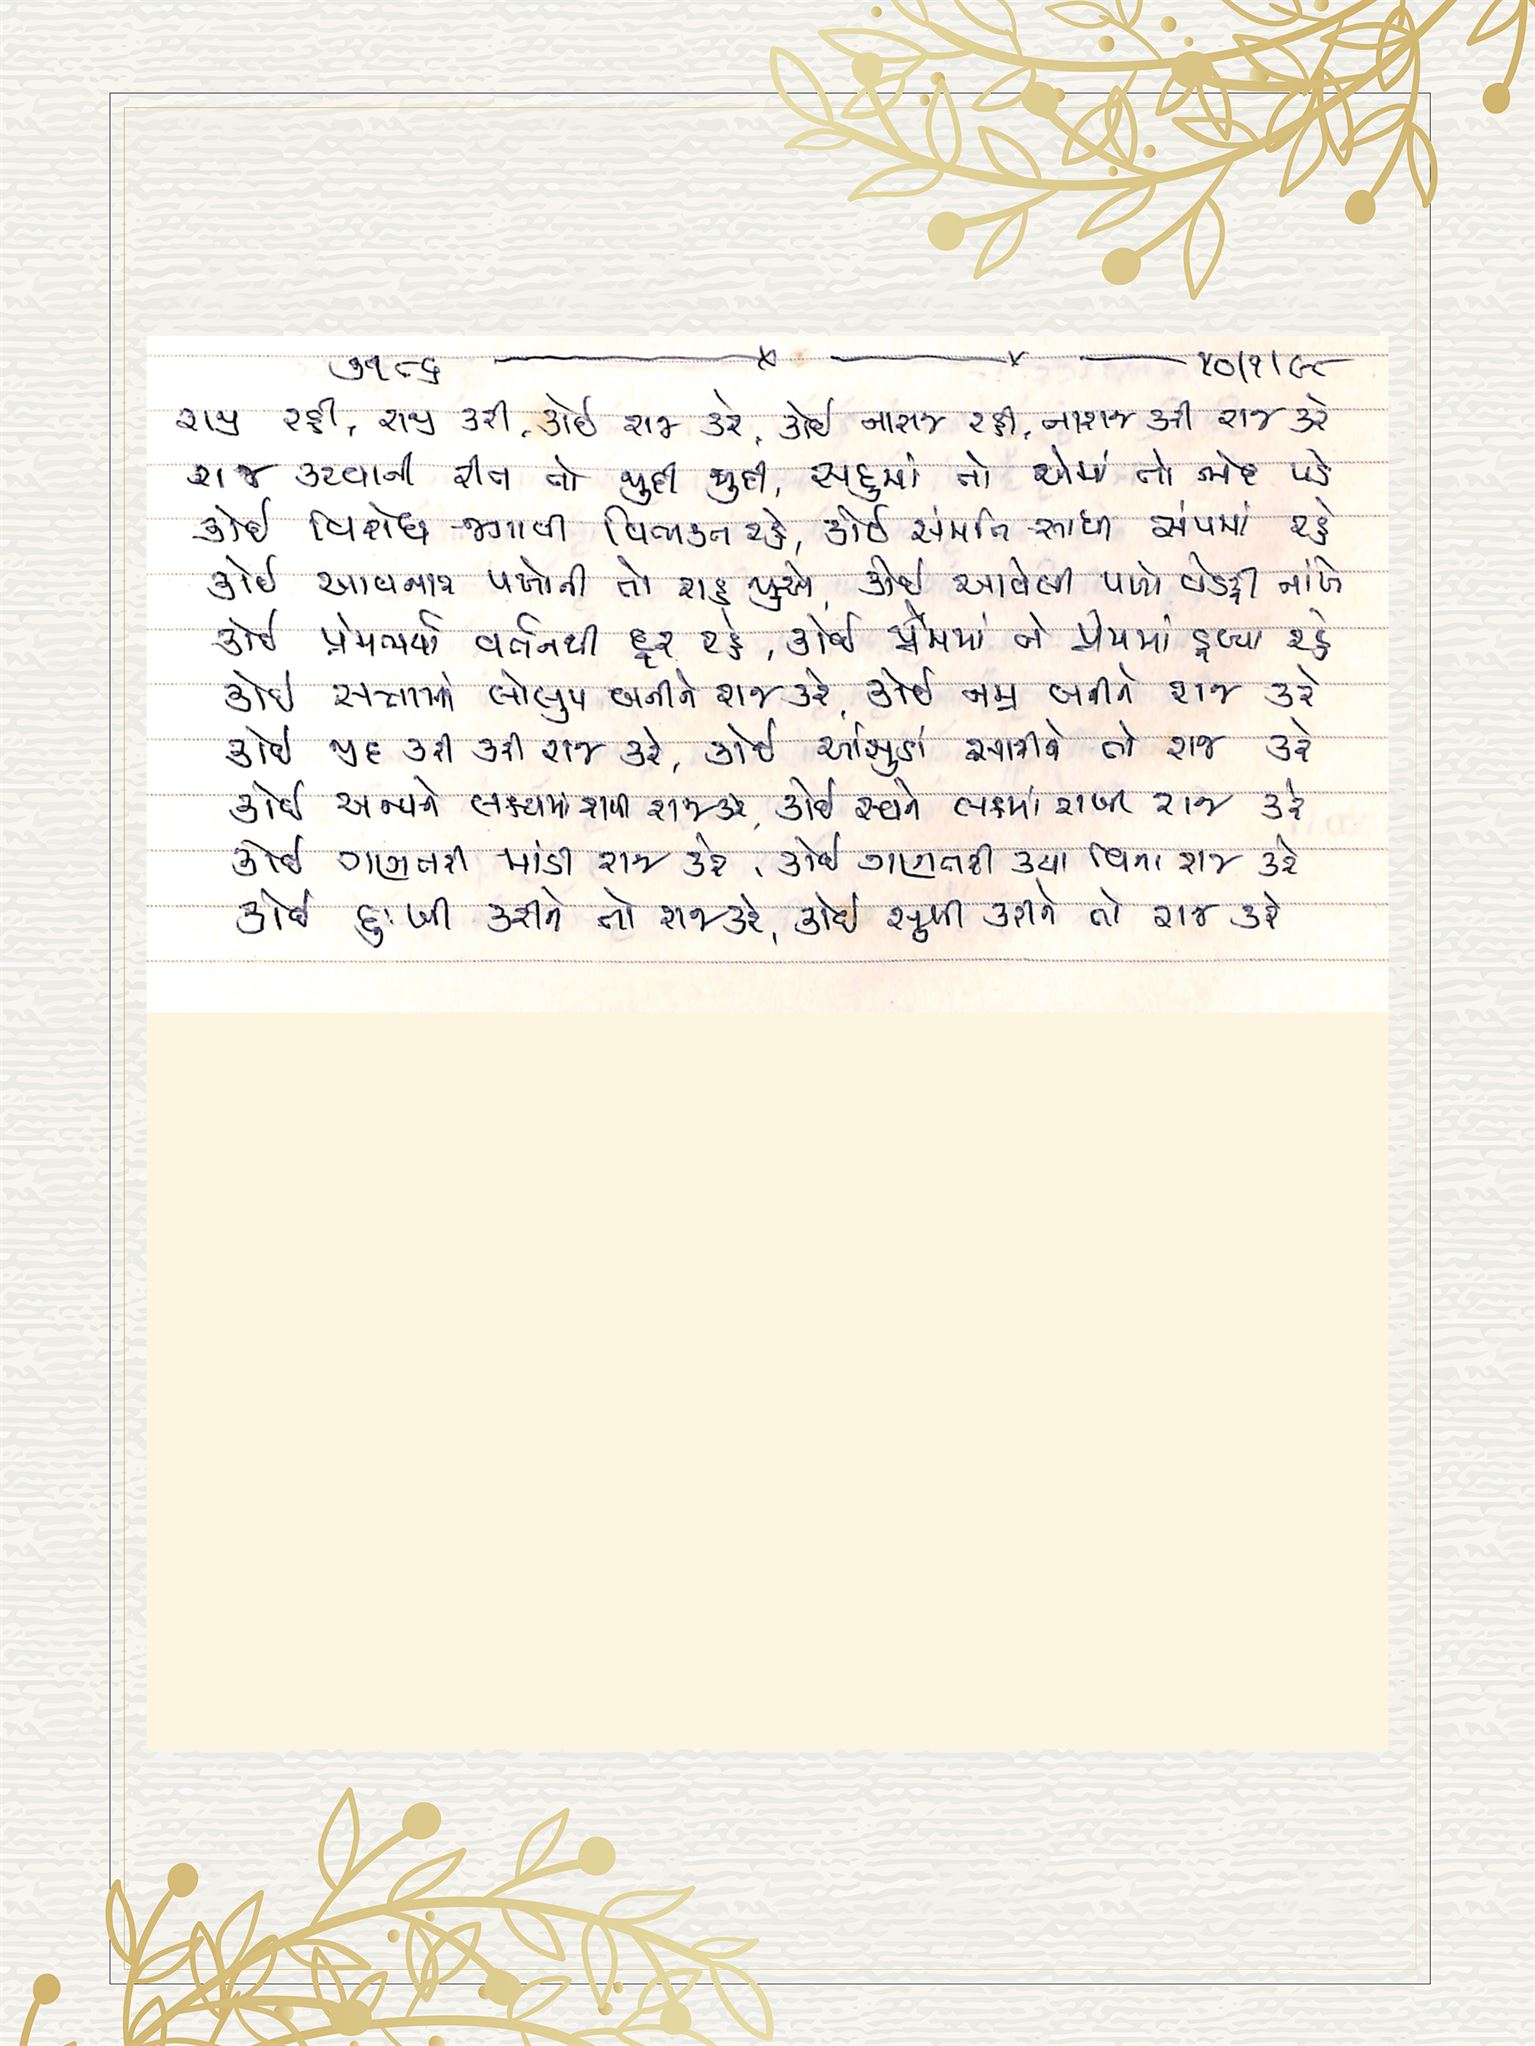 ૭૧૮૬ ૪૦/૧/૯૮
રાજી રહી, રાજી કરી, કોઈ રાજ કરે, કોઈ નારાજ રહી, નારાજ કરી રાજ કરે
રાજ કરવાની રીત તો જુદી જુદી, સહુમાં તો એમાં તો ભેદ પડે
કોઈ વિરોધ જગાવી વિભક્ત રહે, કોઈ સંમતિ સાધી સંપમાં રહે
કોઈ આવનાર પળોની તો રાહ જુએ, કોઈ આવેલી પળો વેડફી નાંખે
કોઈ પ્રેમભર્યા વર્તનથી દૂર રહે, કોઈ પ્રેમમાં ને પ્રેમમાં ડૂબ્યા રહે
કોઈ સત્તામાં લોલુપ બનીને રાજ કરે, કોઈ નમ્ર બનીને રાજ કરે
કોઈ જીદ કરી કરી રાજ કરે, કોઈ આંસુડાં સારીને તો રાજ કરે
કોઈ અન્યને લક્ષ્યમાં રાખી રાજ કરે, કોઈ સ્વને લક્ષમાં રાખી રાજ કરે
કોઈ ગણતરી માંડી રાજ કરે, કોઈ ગણતરી કર્યા વિના રાજ કરે
કોઈ દુઃખી કરીને તો રાજ કરે, કોઈ સુખી કરીને તો રાજ કરે